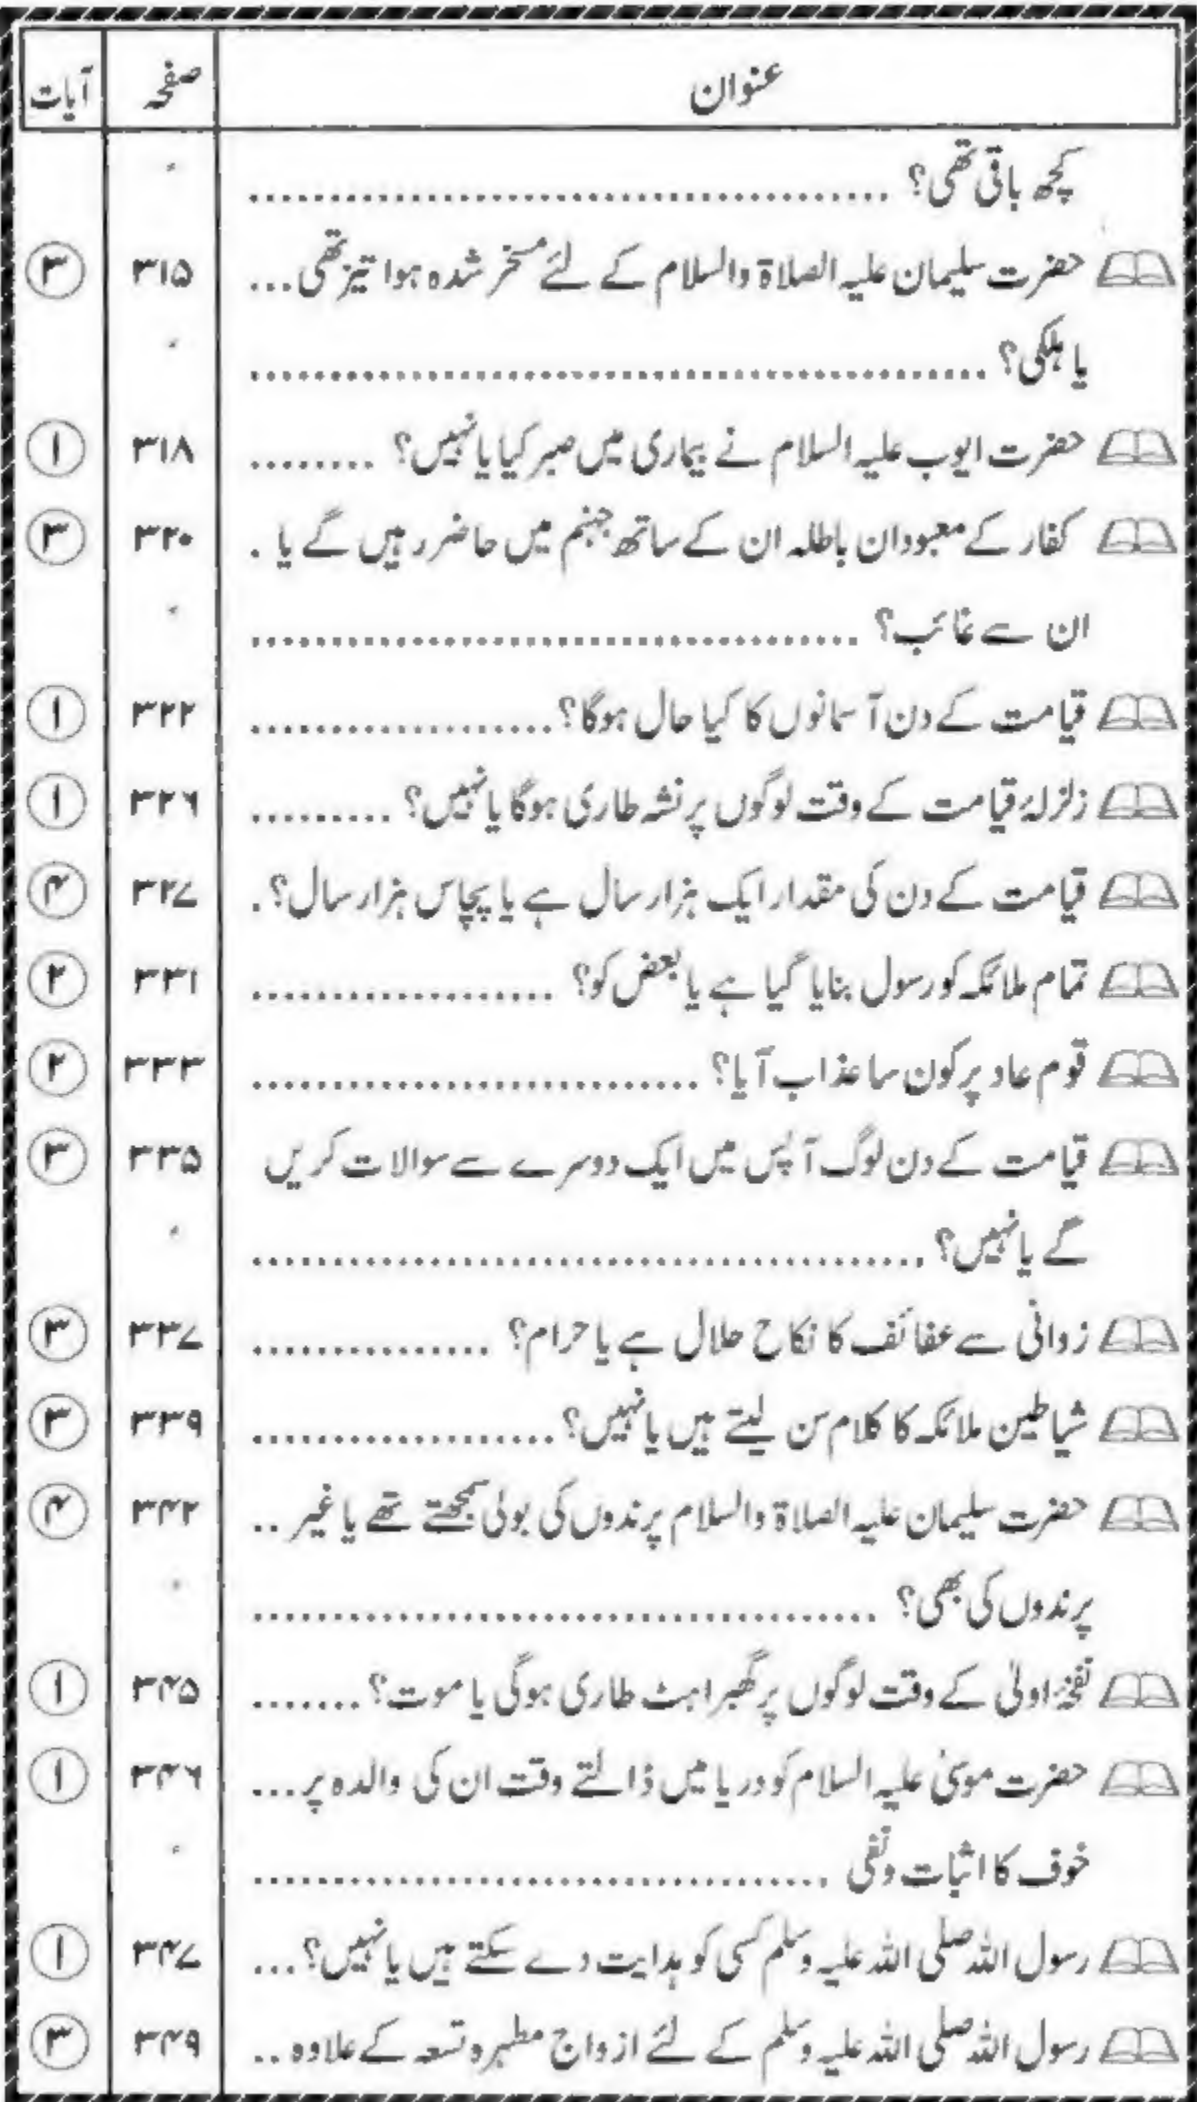 عنوان صفحہ آیات
کچھ باقی تھی؟ ........................................
حضرت سلیمان علیہ الصلاۃ والسلام کے لئے مسخر شدہ ہوا تیز تھی... ۳۱۵ ۳
یا ہلکی؟ ..............................................
حضرت ایوب علیہ السلام نے بیماری میں صبر کیا یا نہیں؟ ......... ۳۱۸ ۱
کفار کے معبودان باطلہ ان کے ساتھ جہنم میں حاضر رہیں گے یا . ۳۲۰ ۳
ان سے غائب؟ ......................................
قیامت کے دن آسمانوں کا کیا حال ہوگا؟................... ۳۲۲ ۱
زلزلۂ قیامت کے وقت لوگوں پر نشہ طاری ہوگا یا نہیں؟ ......... ۳۲۶ ۱
قیامت کے دن کی مقدار ایک ہزار سال ہے یا پچاس ہزار سال؟. ۳۲۷ ۴
تمام ملائکہ کو رسول بنایا گیا ہے یا بعض کو؟ ................... ۳۳۱ ۲
قوم عاد پر کون سا عذاب آیا؟ ............................ ۳۳۳ ۲
قیامت کے دن لوگ آپس میں ایک دوسرے سے سوالات کریں ۳۳۵ ۳
گے یا نہیں؟ ..........................................
زوانی سے عفائف کا نکاح حلال ہے یا حرام؟ ............... ۳۳۷ ۳
شیاطین ملائکہ کا کلام سن لیتے ہیں یا نہیں؟................... ۳۳۹ ۳
حضرت سلیمان علیہ الصلاۃ والسلام پرندوں کی بولی سمجھتے تھے یا غیر .. ۳۴۲ ۴
پرندوں کی بھی؟ .......................................
نفخۂ اولیٰ کے وقت لوگوں پر گھبراہٹ طاری ہوگی یا موت؟....... ۳۴۵ ۱
حضرت موسیٰ علیہ السلام کو دریا میں ڈالتے وقت ان کی والدہ پر... ۳۴۶ ۱
خوف کا اثبات ونفی ....................................
رسول اللہ صلی اللہ علیہ وسلم کسی کو ہدایت دے سکتے ہیں یا نہیں؟... ۳۴۷ ۱
رسول اللہ صلی اللہ علیہ وسلم کے لئے ازواج مطہرہ تسعہ کے علاوہ .. ۳۴۹ ۳